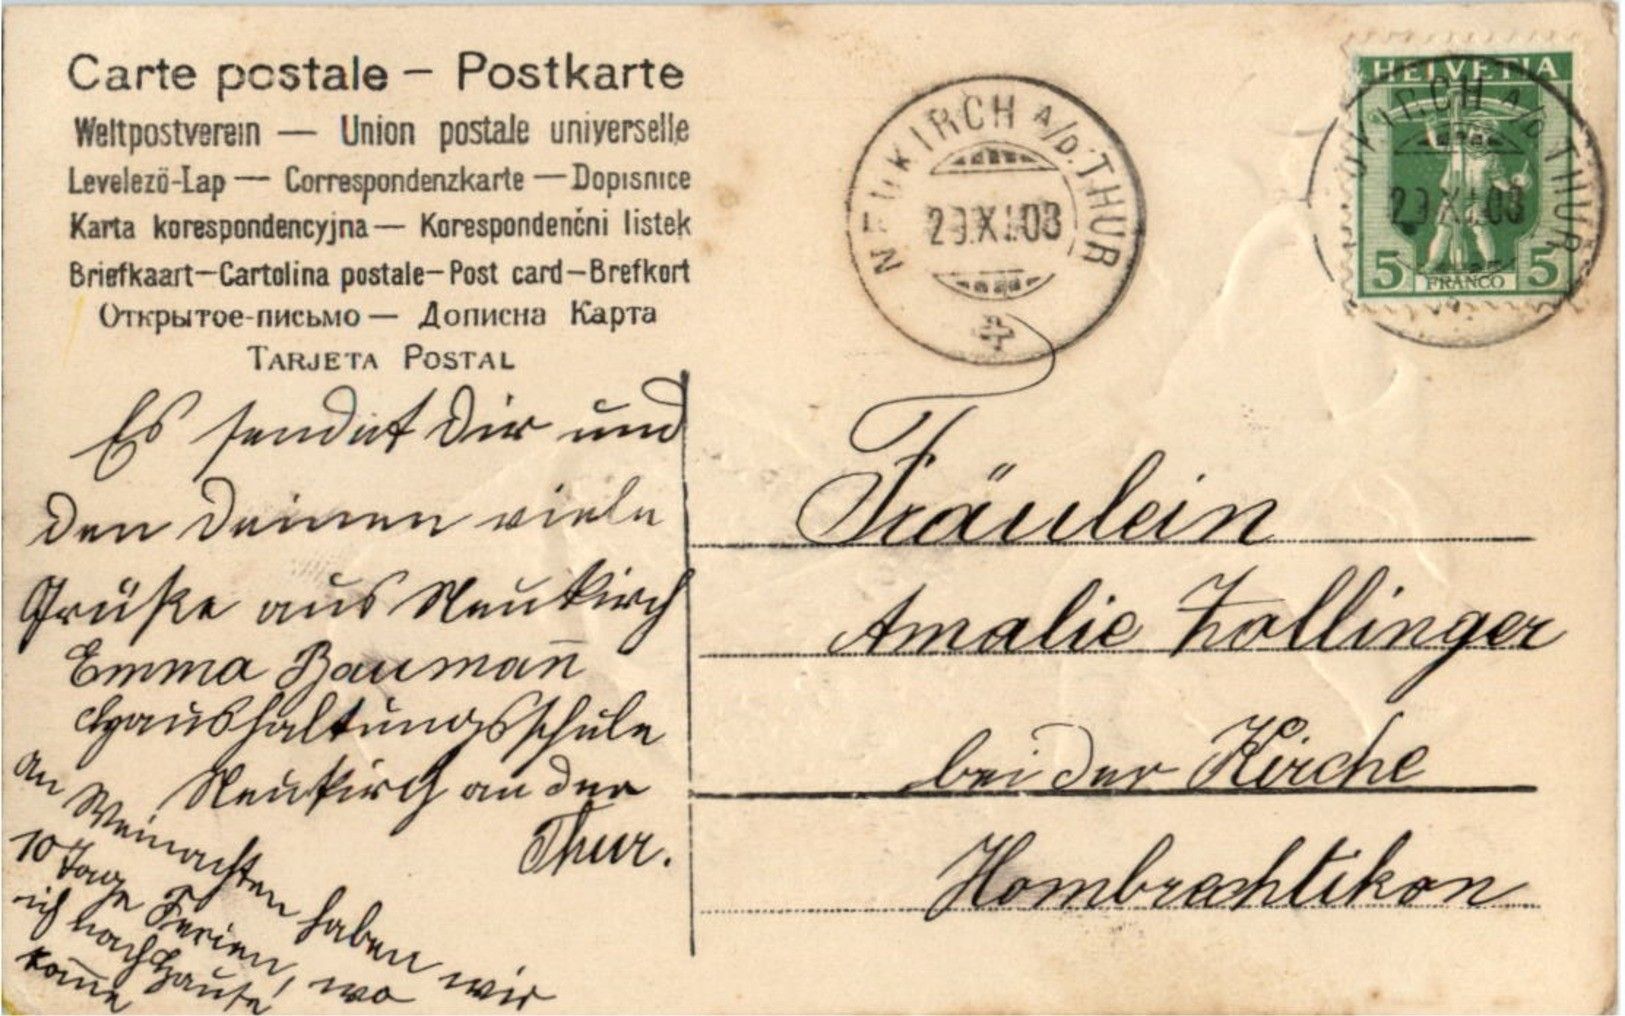 Carte postale – Postkarte
Weltpostverein — Union postale universelle
Levelező-Lap — Correspondenzkarte — Dopisnice
Karta korespondencyjna — Korespondenčni listek
Briefkaart — Cartolina postale — Post card — Brefkort
Открытое-письмо — Дописна Карта
Tarjeta Postal
NEUKIRCH A/D. THUR
29.XI.08
HELVETIA
5 FRANCO 5
UKIRCH A/D. THUR
29.XI.08
Es sendet Dir und
den Deinen viele
Grüße aus Neukirch
Emma Baumañ
Haushaltungsschule
Neukirch an der
Thur.
An Weinachten haben wir
10 Tage Ferien, wo
ich nach Hause
kom̄e!
Fräulein
Amalie Zollinger
bei der Kirche
Hombrechtikon